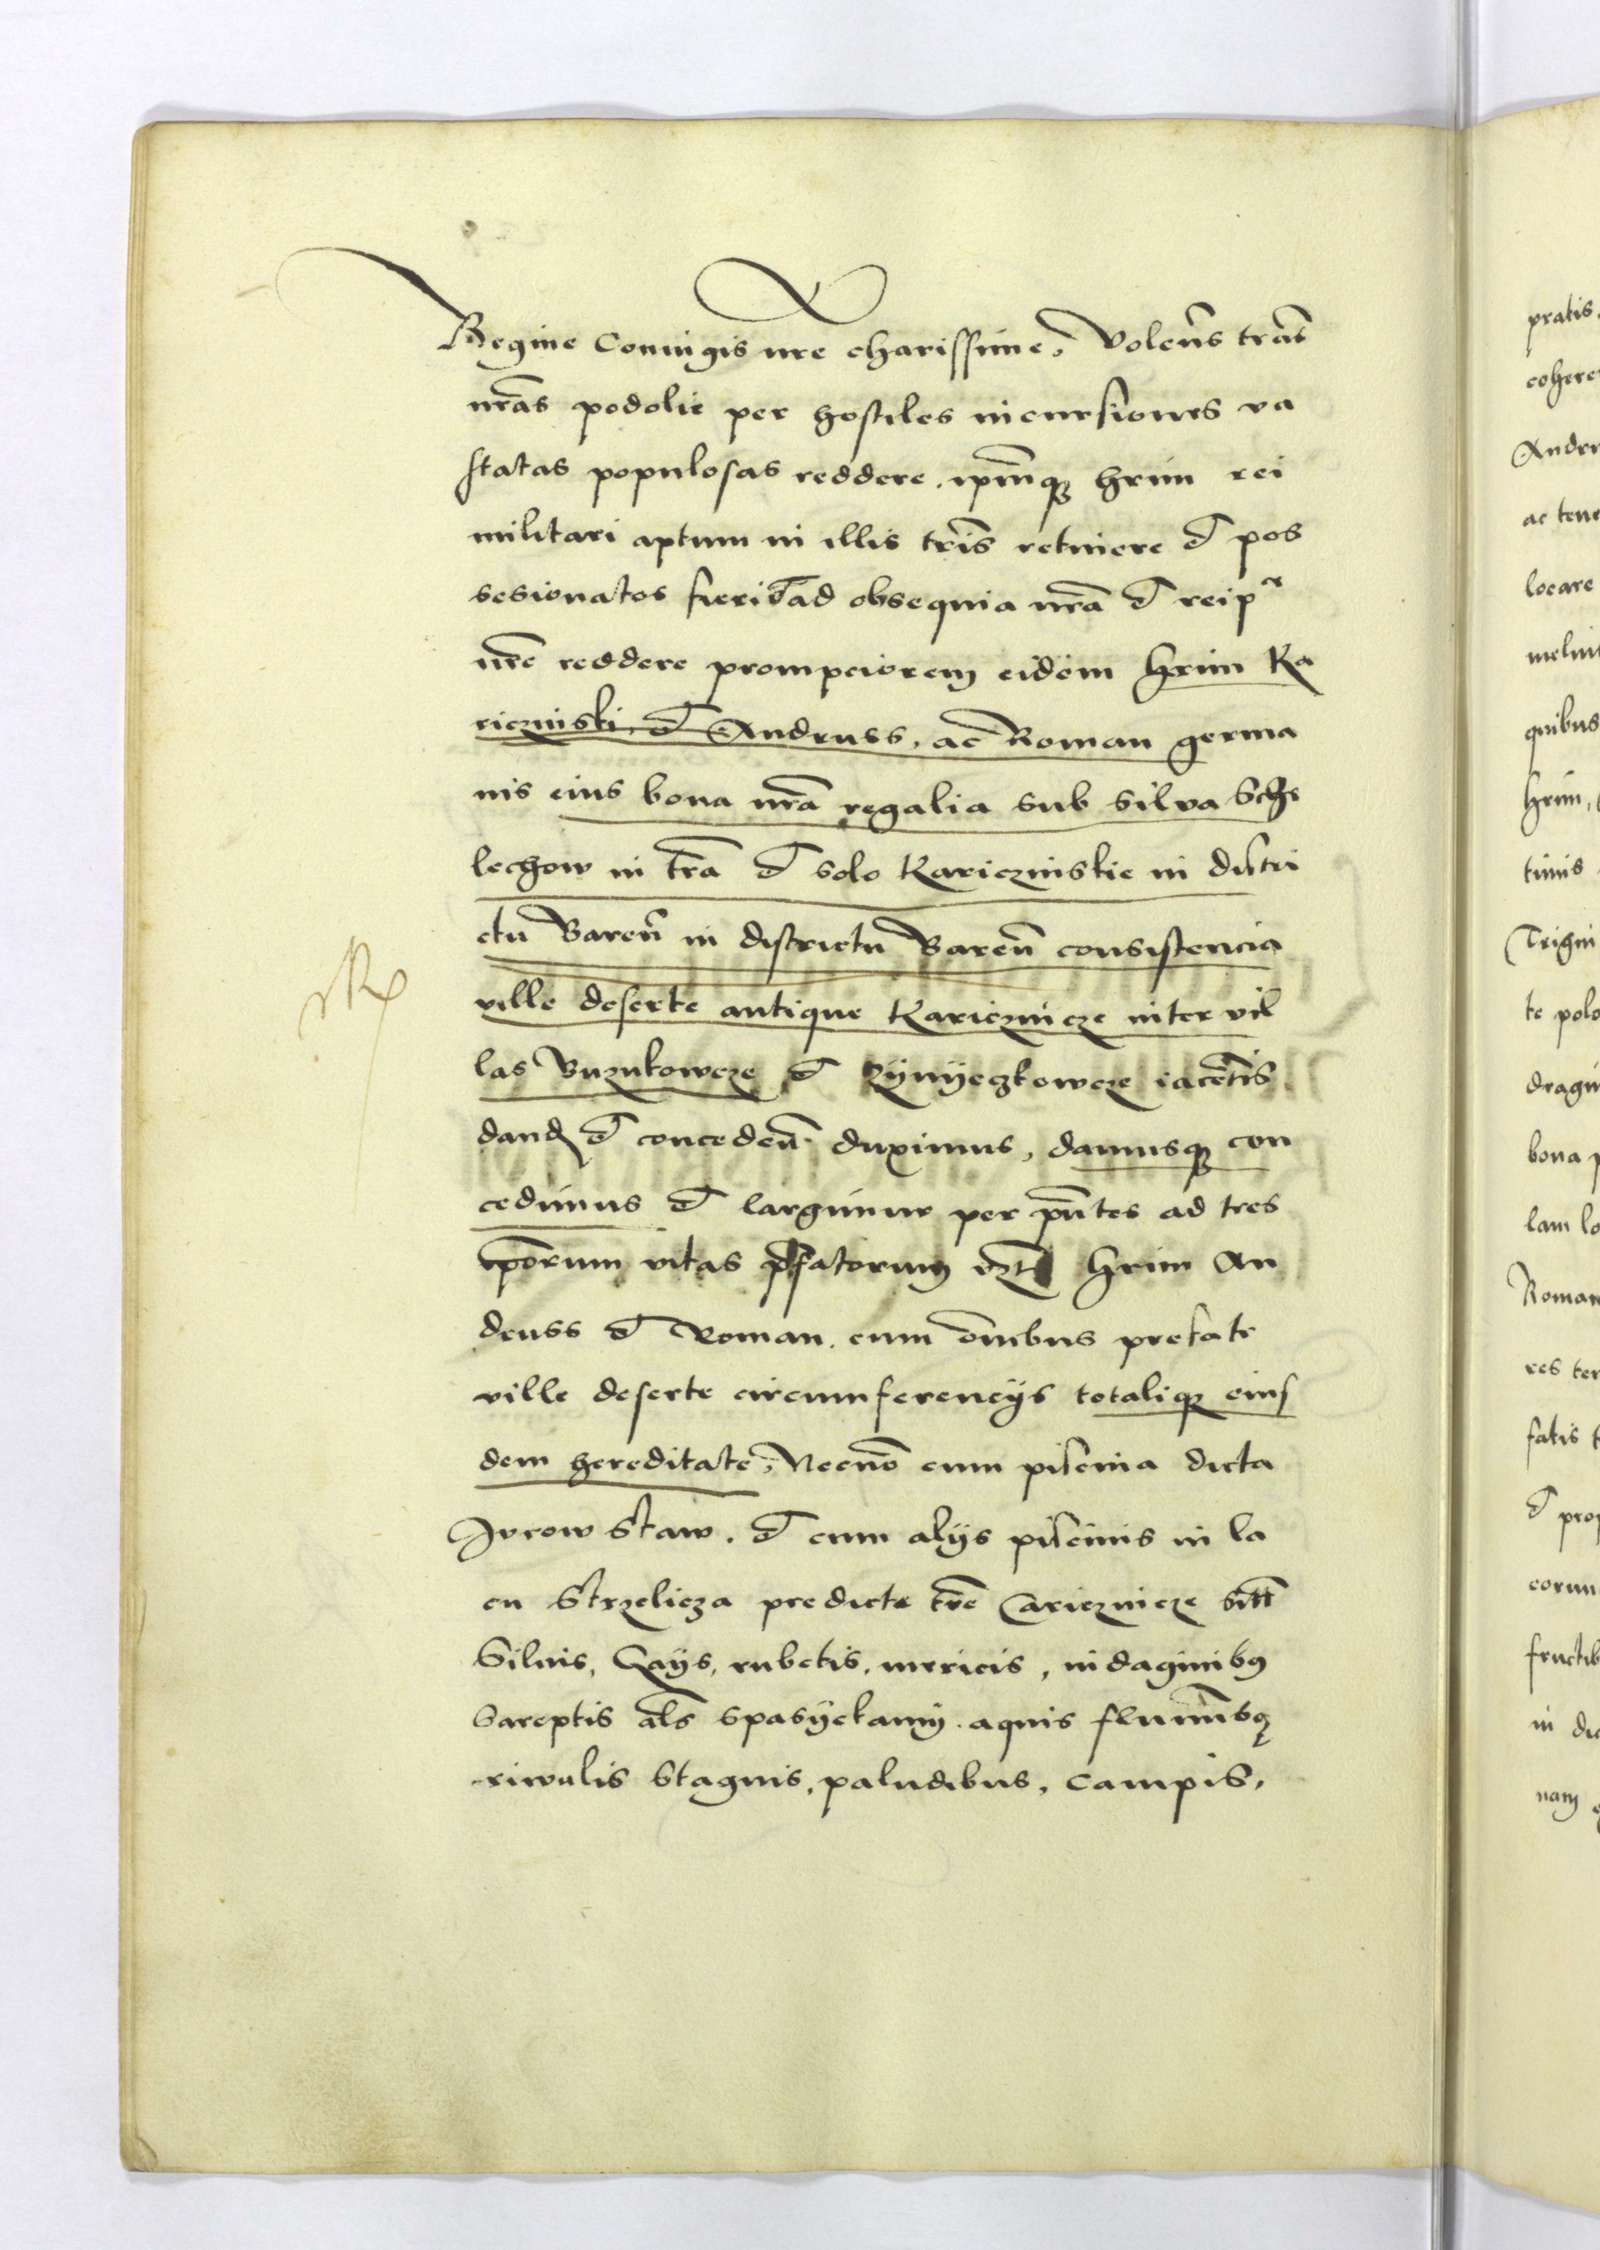 Regine Coniugis nre charissime, Volens tras
nras podolie per hostiles incursiones va
statas populosas reddere, ipmque hrim rei
militari aptum in illis tris retinere et pos
sesionatos fieri et ad obsequia nra et reip
nre reddere prompciorem eidem hrim Ka
riczinski, et Andruss, ac Roman germa
nis eius bona nra regalia sub silva Sche
lechow in tra et solo Kariczinskie in distri
ctu Baren in districtu Baren consistencia
ville deserte antique Kariczincze inter vil
las Buzukowcze et iacentis
dand et conceden duximus, damusque con
cedimus et largimur per pntes ad tres
iporum vitas pfatorum hrim An
druss et Roman. cum omibus prefate
ville deserte circumferencijs totalique eius
dem hereditate, Necno cum piscina dicta
Jvrow Staw. et cum alijs piscinis in la
cu Strzelicza predicte tre Cariczincze
Siluis, Gays, rubetis, mericis, indaginibus
Sareptis als spasyekamy. aquis fluminibusque
riwulis Stagnis, paludibus, campis,
pratis
Andr
ac ten
locare
quibus
hrim,
timis
Trigin
te polo
dragin
bona p
lam lo
Roman
res ter
fatis t
et prop
eorum
fructib
in dic
nam